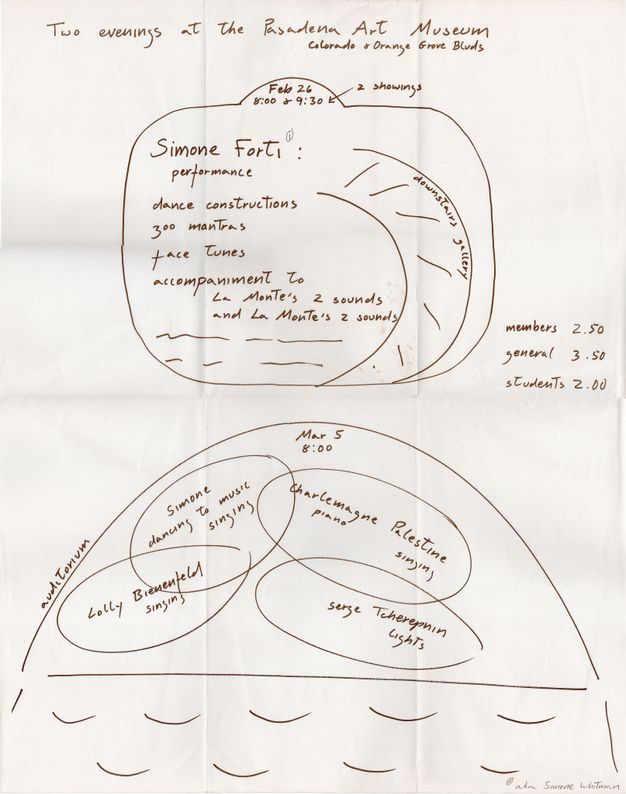 Two evenings at the Pasadena Art Museum
Colorado & Orange Grove Blvds
Feb 26
8:00 & 9:30
2 showings
Simone Forti ① :
performance
dance constructions
300 mantras
face tunes
accompaniment to
La Monte's 2 sounds
and La Monte's 2 sounds
downstairs gallery
members 2.50
general 3.50
students 2.00
Mar 5
8:00
auditorium
Simone
dancing to music
singing
Charlemagne Palestine
piano
singing
Lolly Bienenfeld
singing
Serge Tcherepnin
lights
① aka Simone Whitman